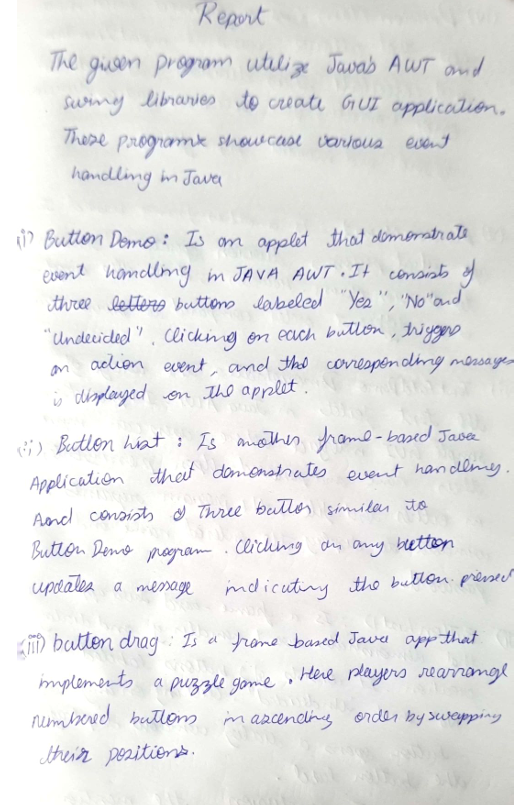 Report
The given program utilize Java's AWT and
swing libraries to create GUI application.
These programs showcase various event
handling in Java
(i) Button Demo : Is an applet that demonstrate
event handling in JAVA AWT. It consists of
three letters buttons labeled "Yes", "No" and
"Undecided". Clicking on each button, triggers
an action event, and the corresponding messages
is displayed on the applet.
(ii) Button List : Is another frame-based Java
Application that demonstrates event handling.
And consists of Three button similar to
Button Demo program. Clicking on any button
updates a message indicating the button pressed
(iii) button drag : Is a frame based Java app that
implements a puzzle game. Here players rearrange
numbered buttons in ascending order by swapping
their positions.